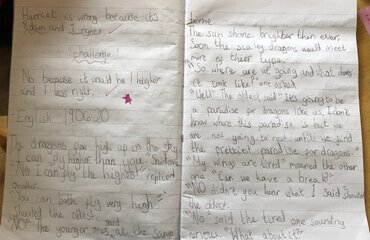 Harriet is wrong because it's
9 down and 3 right
challenge!
No because it would be 1 higher
and 1 less right.
English 19.06.20
The dragons flew high up in the sky.
"I can fly higher than you" said
"No I can fly the highest" replied
another.
"You can both fly very high"
shouted the oldest.
"NO!" The younger ones said at the same
time.
The sun shone brighter then ever.
Soon the scaley dragons would meet
more of their type.
"So where are we going and what does
it look like?" one asked.
"Well" The oldest said "It's going to be
a paradise for dragons like us, I don't
know where this paradise is but we
are not going to rest until we find
the prettiest paradise for dragons."
"My wings are tired" moaned the other
one "Can we have a break?"
"NO didn't you hear what I said" Shouted
the oldest.
"No" said the tired one sounding
nervous. "What about it?"